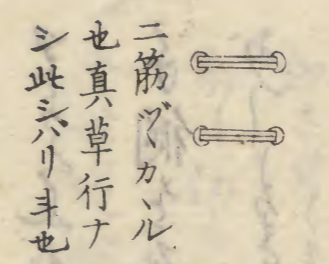 二筋ヅヽカヽル
也真草行ナ
シ此シバリ斗也